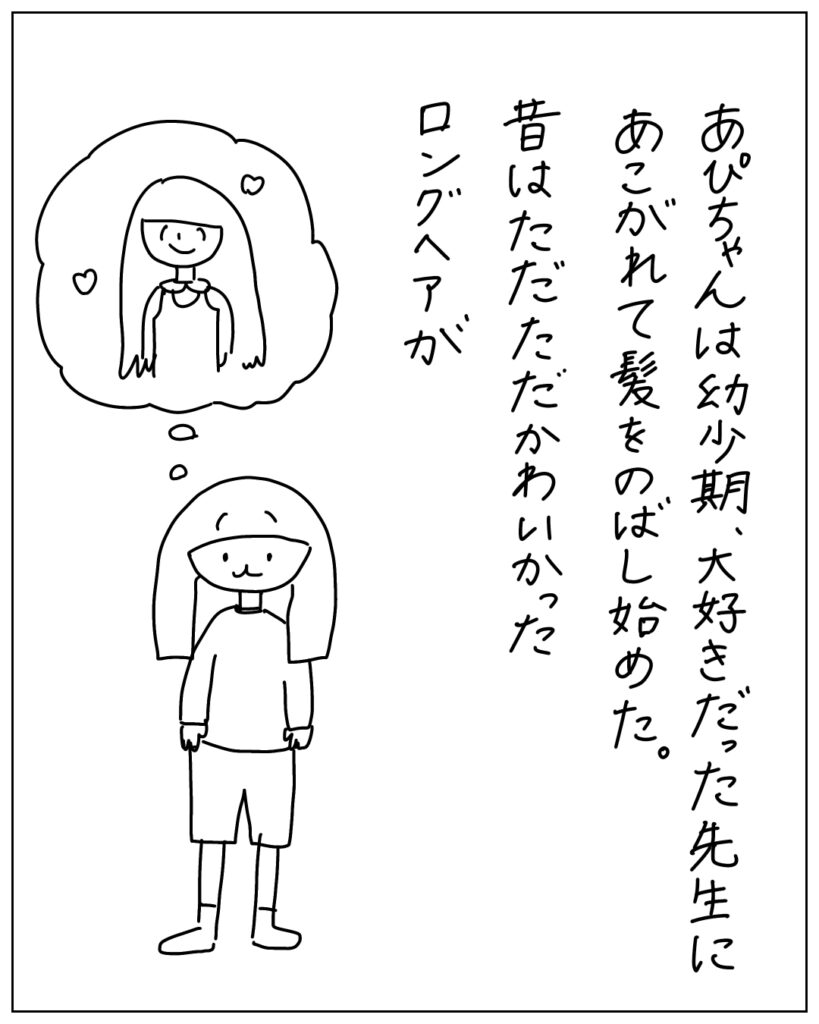 あぴちゃんは幼少期、大好きだった先生に
あこがれて髪をのばし始めた。
昔はただただかわいかった
ロングヘアが